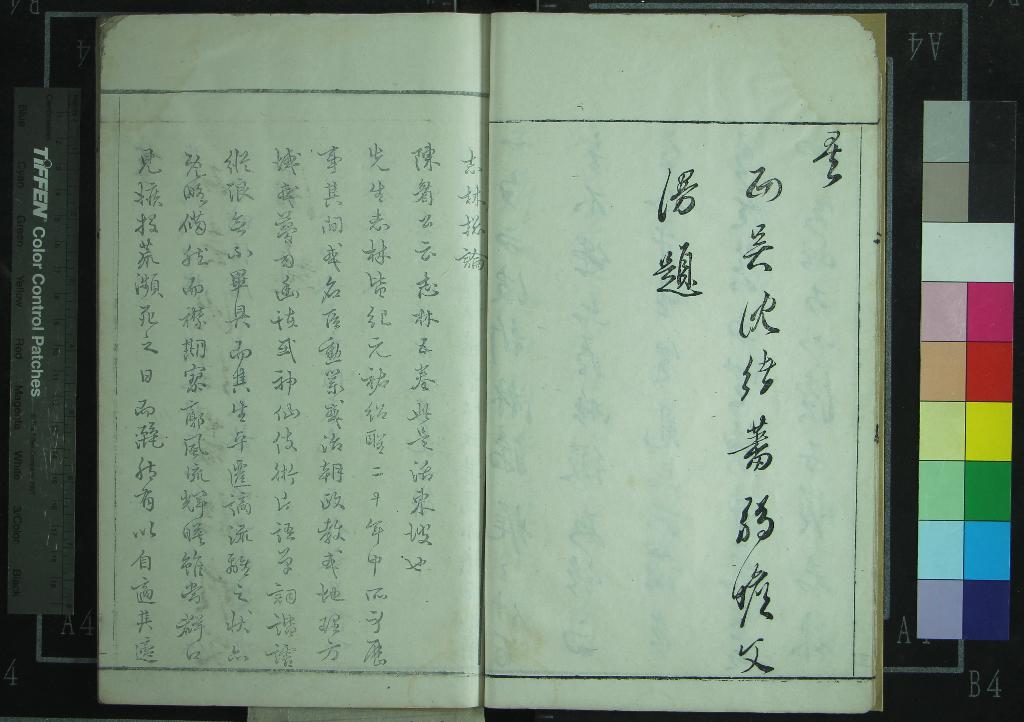 西吳沈緒蕃弱瞻父
漫題
志林總論
陳眉公云志林五卷此是活東坡也
先生志林皆紀元祐紹聖二十年中所身歷
事其間或名臣勳業或治朝政教或地理方
域或夢寐幽怪或神仙伎術片語單詞諧謔
縱浪無不畢具而其生平遷謫流離之狀亦
既略備然而襟期寥廓風流輝映雖當群口
見擠投荒瀕死之日而灑然有以自適其適
TIFFEN Color Control Patches
Blue
Cyan
Green
Yellow
Red
Magenta
White
3/Color
Black
A4
B4